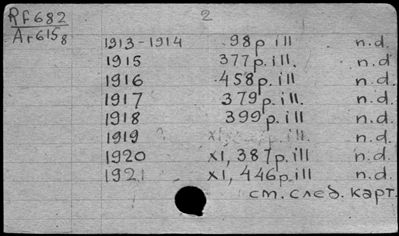 Rf682 2
Ar6158
1913-1914 98p ill n.d.
1915 377p. ill. n.d
1916 458p. ill n.d.
1917 379p. ill. n.d.
1918 399p. ill n.d.
1919 ill. n.d.
1920 XI, 387p. ill n.d.
1921 XI, 446p. ill n.d.
см. след. карт.